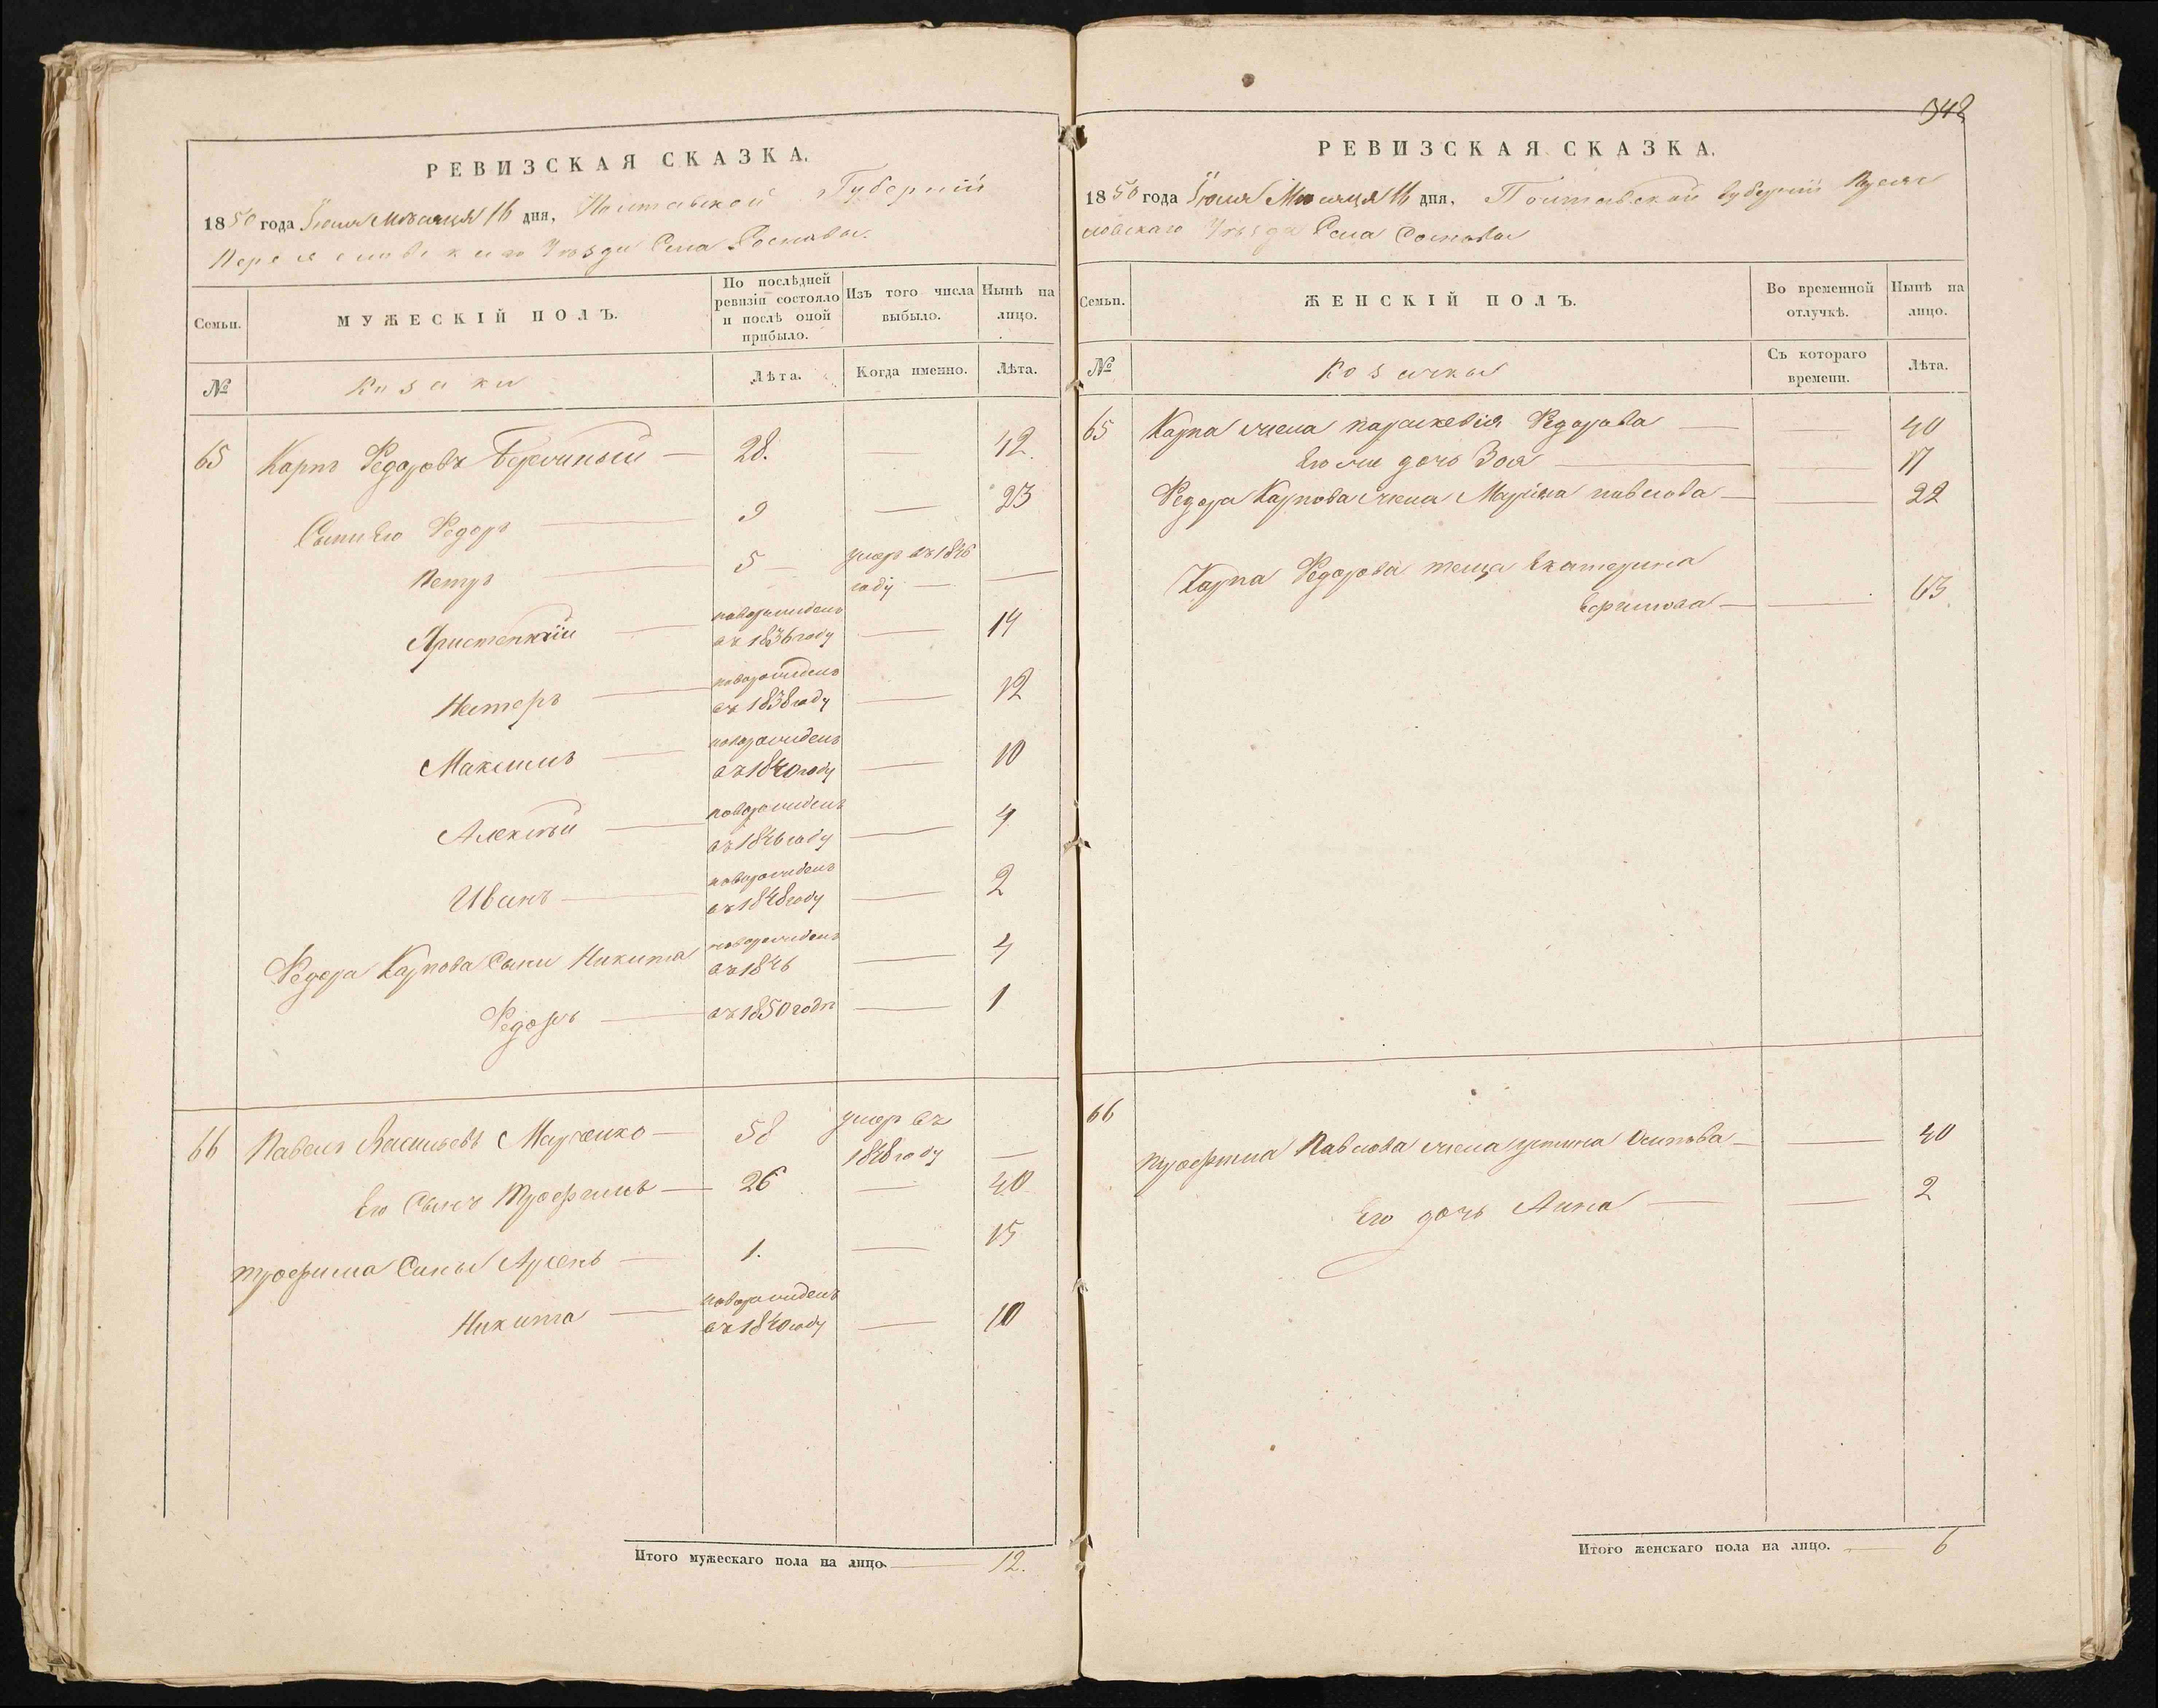 РЕВИЗСКАЯ СКАЗКА.
1850 года Іюля Мѣсяця 16 дня, Полтавской Губерніи
Переяславскаго Уѣзда Села Сосновы.
Семьи.
МУЖЕСКІЙ ПОЛЪ.
По послѣдней ревизіи состояло и послѣ оной прибыло.
Изъ того числа выбыло.
Нынѣ на лицо.
№
Козаки
Лѣта.
Когда именно.
Лѣта.
65 Карпъ Федоровъ — 28. — 42.
Сыни Его Федоръ — 9 — 23
Петръ — 5 — умеръ въ 1846
году — —
новорожденъ
въ 1836 году — 14
Несторъ — новорожденъ
въ 1838 году — 12
Максимъ — новорожденъ
въ 1840 году — 10
Алексѣй — новорожденъ
въ 1846 году — 4
Иванъ — новорожденъ
въ 1848 году — 2
Федора Карпова Сыни Никита новорожденъ
въ 1846 — 4
Федоръ — въ 1850 годѣ — 1
66 Павелъ Васильевъ Марченко — 58 умеръ въ
1848 году —
Его Сынъ Трофимъ — 26 — 40
Трофима Сины Арсенъ — 1. — 15
Никита — новорожденъ
въ 1840 году — 10
Итого мужескаго пола на лицо. — 12.
342
РЕВИЗСКАЯ СКАЗКА.
1850 года Іюля Мѣсяця 16 дня, Полтавской Губерніи Переяс
лавскаго Уѣзда Села Сосновы
Семьи.
ЖЕНСКІЙ ПОЛЪ.
Во временной отлучкѣ.
Нынѣ на лицо.
№
Козачки
Съ котораго времени.
Лѣта.
65 Карпа жена Параскевія Федорова — — 40
Его же дочь Зоя — — 17
Федора Карпова жена Марина Павлова — — 22
Карпа Федорова теща Екатерина
— — 63
66
Трофима Павлова жена Устина Осипова — — 40
Его дочь Анна — — 2
Итого женскаго пола на лицо. — 6